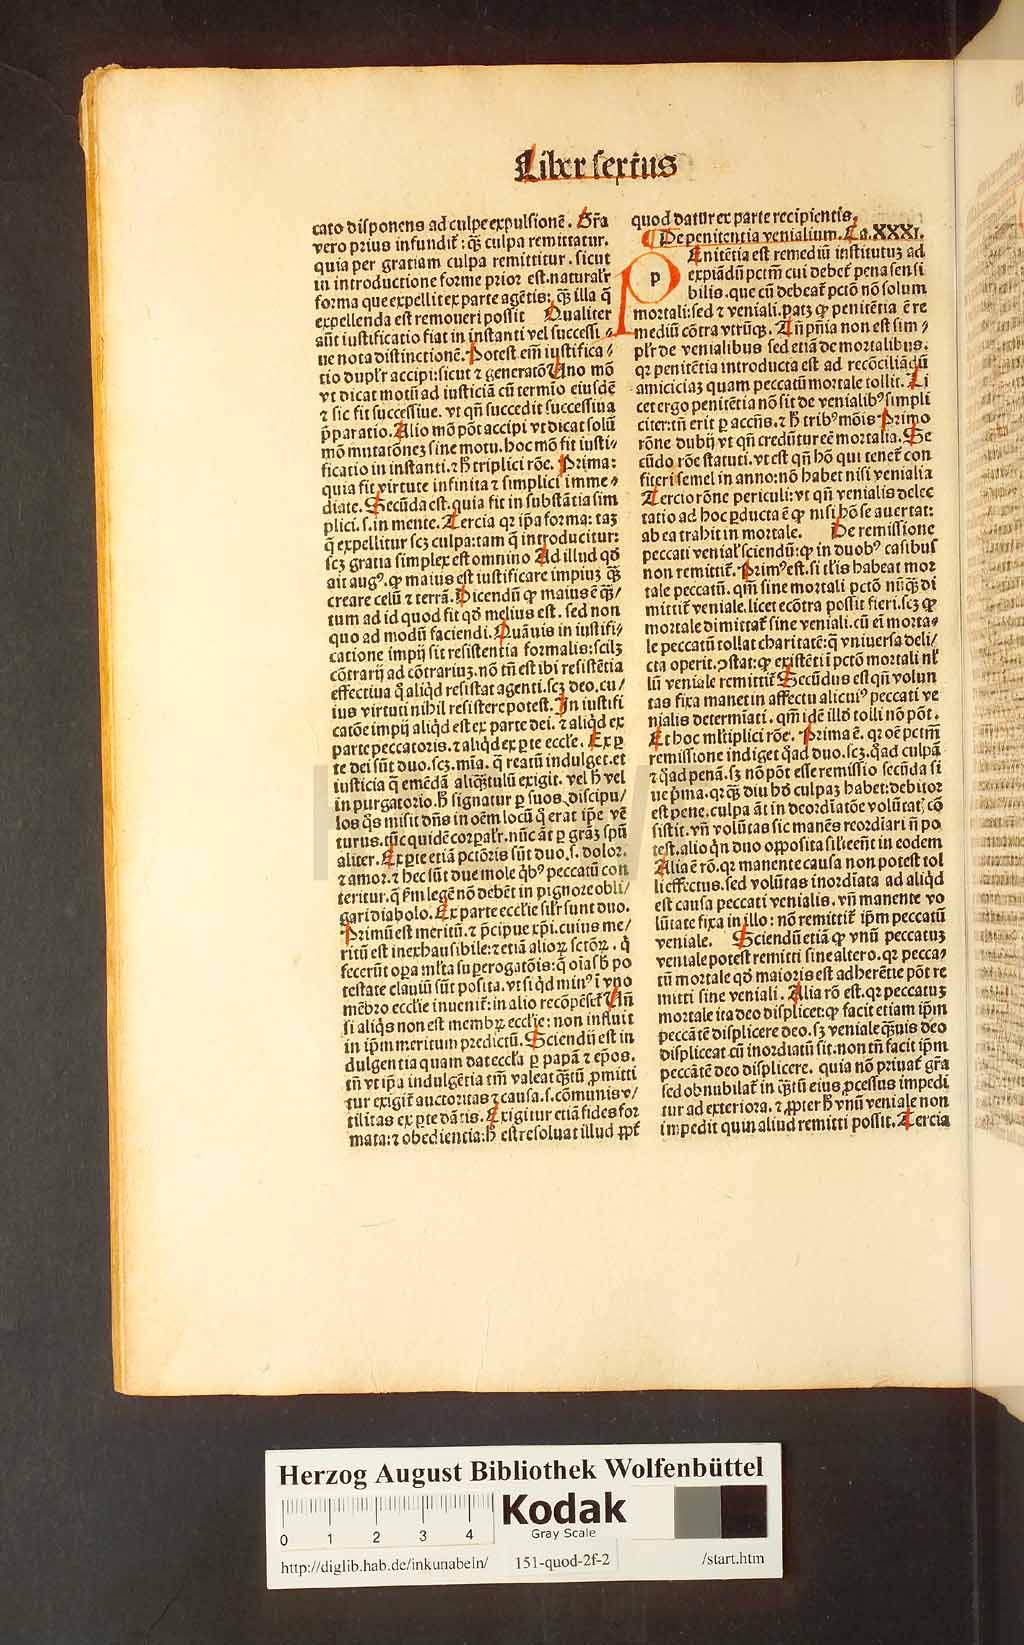 Liber sextus
cato disponens ad culpe expulsionẽ. Gr̃a
vero prius infundit᷑: q̃ꝫ culpa remittatur.
quia per gratiam culpa remittitur. sicut
in introductione forme prior est. naturalr̃
forma que expellit ex parte agẽtis: q̃ꝫ illa q̃
expellenda est remoueri possit Qualiter
aũt iustificatio fiat in instanti vel successi⸗
ue nota distinctionẽ. Potest em̃ iustifica⸗
tio duplr̃ accipi: sicut ⁊ generatõ Uno mõ
vt dicat motũ ad iusticiã cũ termĩo eiusdẽ
⁊ sic fit successiue. vt qñ succedit successiua
p̃paratio. Alio mõ põt accipi vt dicat solũ
mõ mutatõneꝫ sine motu. hoc mõ fit iusti⸗
ficatio in instanti. ⁊ h̃ triplici rõe. Prima:
quia fit virtute infinita ⁊ simplici imme⸗
diate. Secũda est. quia fit in substãtia sim
plici. s. in mente. Tercia qꝛ ip̃a forma: taꝫ
q̃ expellitur scꝫ culpa: tam q̃ introducitur:
scꝫ gratia simplex est omnino Ad illud qd̃
ait augꝰ. ꝙ maius est iustificare impiuꝫ q̃ꝫ
creare celũ ⁊ terrã. Dicendũ ꝙ maius ẽ q̃ꝫ/
tum ad id quod fit qd̃ melius est. sed non
quo ad modũ faciendi. Quãuis in iustifi⸗
catione impij sit resistentia formalis: scilꝫ
cõtrarij ad cõtrariuꝫ. nõ tñ est ibi resistẽtia
effectiua q̃ aliq̃d resistat agenti. scꝫ deo. cu/
ius virtuti nihil resistere potest. In iustifi
catõe impij aliq̃d est ex parte dei. ⁊ aliq̃d ex
parte peccatoris. ⁊ aliq̃d ex ꝑte eccl̃e. Ex ꝑ
te dei sũt duo. scꝫ. mĩa. q̃ reatũ indulget. et
iusticia q̃ emẽdã aliq̃ꝫtulũ exigit. vel h̃ vel
in purgatorio. h̃ signatur ꝑ suos discipu/
los q̃s misit dñs in oẽm locũ q̃ erat ip̃e vẽ
turus. tũc quidẽ corꝑalr̃. nũc ãt ꝑ grãꝫ sp̃ũ
aliter. Ex ꝑte etiã pctõris sũt duo. s. dolor.
⁊ amor. ⁊ hec sũt due mole q̃bꝰ peccatũ con
teritur. q̃ ẽm legẽ nõ debẽt in pignore obli/
gari diabolo. Ex parte eccl̃ie silr̃ sunt duo.
Primũ est meritũ. ⁊ p̃cipue xp̃i. cuius me/
ritũ est inexhausibile: ⁊ etiã alioꝝ sctõꝝ. q̃
fecerũt oꝑa ml̃ta suꝑerogatõis: q̃ oĩa sb̃ po
testate clauiũ sũt posita. vt si q̃d minꝰ ĩ vno
mẽbro eccl̃ie inuenit᷑: in alio recõpẽset᷑ Uñ
si aliq̃s non est membꝝ eccl̃ie: non influit
in ip̃m meritum predictũ. Sciendũ est in
dulgentia quam dat eccl̃a ꝑ papã ⁊ ep̃os.
tñ vt ip̃a indulgẽtia tm̃ valeat q̃ꝫtũ ꝓmitti
tur exigit᷑ auctoritas ⁊ causa. s. cõmunis v/
tilitas ex ꝑte dãtis. Exigitur etiã fides for
mata: ⁊ obedientia: h̃ est resoluat illud ꝓpt᷑
quod datur ex parte recipientis.
¶ De penitentia venialium. Ca. XXXI.
p Enitẽtia est remediũ institutuꝫ ad
expiãdũ pctm̃ cui debet᷑ pena sensi
bilis. que cũ debeat᷑ pctõ nõ solum
mortali: sed ⁊ veniali. patꝫ ꝙ penitẽtia ẽ re
mediũ cõtra vtrũqꝫ. Añ pñia non est sim⸗
plr̃ de venialibus sed etiã de mortalibus.
qꝛ penitẽtia introducta est ad recõciliãdũ
amiciciaꝫ quam peccatũ mortale tollit. Li
cet ergo penitẽtia nõ sit de venialibꝰ simpli
citer: tñ erit ꝑ accñs. ⁊ h̃ tribꝰ mõis Primo
rõne dubij vt qñ credũtur eẽ mortalia. Se
cũdo rõe statuti. vt est qñ hõ qui tenet᷑ con
fiteri semel in anno: nõ habet nisi venialia
Tercio rõne periculi: vt qñ venialis delec
tatio ad hoc ꝑducta ẽ ꝙ nisi hõ se auertat:
ab ea trahit in mortale. De remissione
peccati venial᷑ sciendũ: ꝙ in duobꝰ casibus
non remittit᷑. Primꝰ est. si q̃s habeat mor
tale peccatũ. qm̃ sine mortali pctõ nũq̃ꝫ di
mittit᷑ veniale. licet ecõtra possit fieri. scꝫ ꝙ
mortale dimittat᷑ sine veniali. cũ eĩ morta⸗
le peccatũ tollat charitatẽ: q̃ vniuersa deli/
cta operit. ꝯstat: ꝙ existẽti ĩ pctõ mortali nl᷑
lũ veniale remittit᷑ Secũdus est qñ volun
tas fixa manet in affectu alicuiꝰ peccati ve
nialis determĩati. qm̃ idẽ illd̃ tolli nõ põt.
Et hoc ml̃tiplici rõe. Prima ẽ. qꝛ oẽ pctm̃
remissione indiget q̃ad duo. scꝫ. q̃ad culpã
⁊ q̃ad penã. sꝫ nõ põt esse remissio secũda si
ue p̃ma. qꝛ q̃ꝫ diu hõ culpaꝫ habet: debitor
est pene. culpa ãt in deordĩatõe volũtat᷑ cõ
sistit. vñ volũtas sic manẽs reordĩari ñ po
test. alioq̃n duo opposita sil᷑ eẽnt in eodem
Alia ẽ rõ. qꝛ manente causa non potest tol
li effectus. sed volũtas inordĩata ad aliq̃d
est causa peccati venialis. vñ manente vo
lũtate fixa in illo: nõ remittit᷑ ip̃m peccatũ
veniale. Sciendũ etiã ꝙ vnũ peccatuꝫ
veniale potest remitti sine altero. qꝛ pecca⸗
tũ mortale qd̃ maioris est adherẽtie põt re
mitti sine veniali. Alia rõ est. qꝛ peccatuꝫ
mortale ita deo displicet: ꝙ facit etiam ip̃m
peccãtẽ displicere deo. sꝫ veniale q̃ꝫuis deo
displiceat cũ inordiatũ sit. non tñ facit ip̃m
peccãtẽ deo displicere. quia nõ priuat᷑ gr̃a
sed obnubilat᷑ in q̃ꝫtũ eius ꝓcessus impedi
tur ad exteriora. ⁊ ꝓpter h̃ vnũ veniale non
impedit quin aliud remitti possit. Tercia
Herzog August Bibliothek Wolfenbüttel
0 1 2 3 4
Kodak
Gray Scale
http://diglib.hab.de/inkunabeln/ 151-quod-2f-2 /start.htm